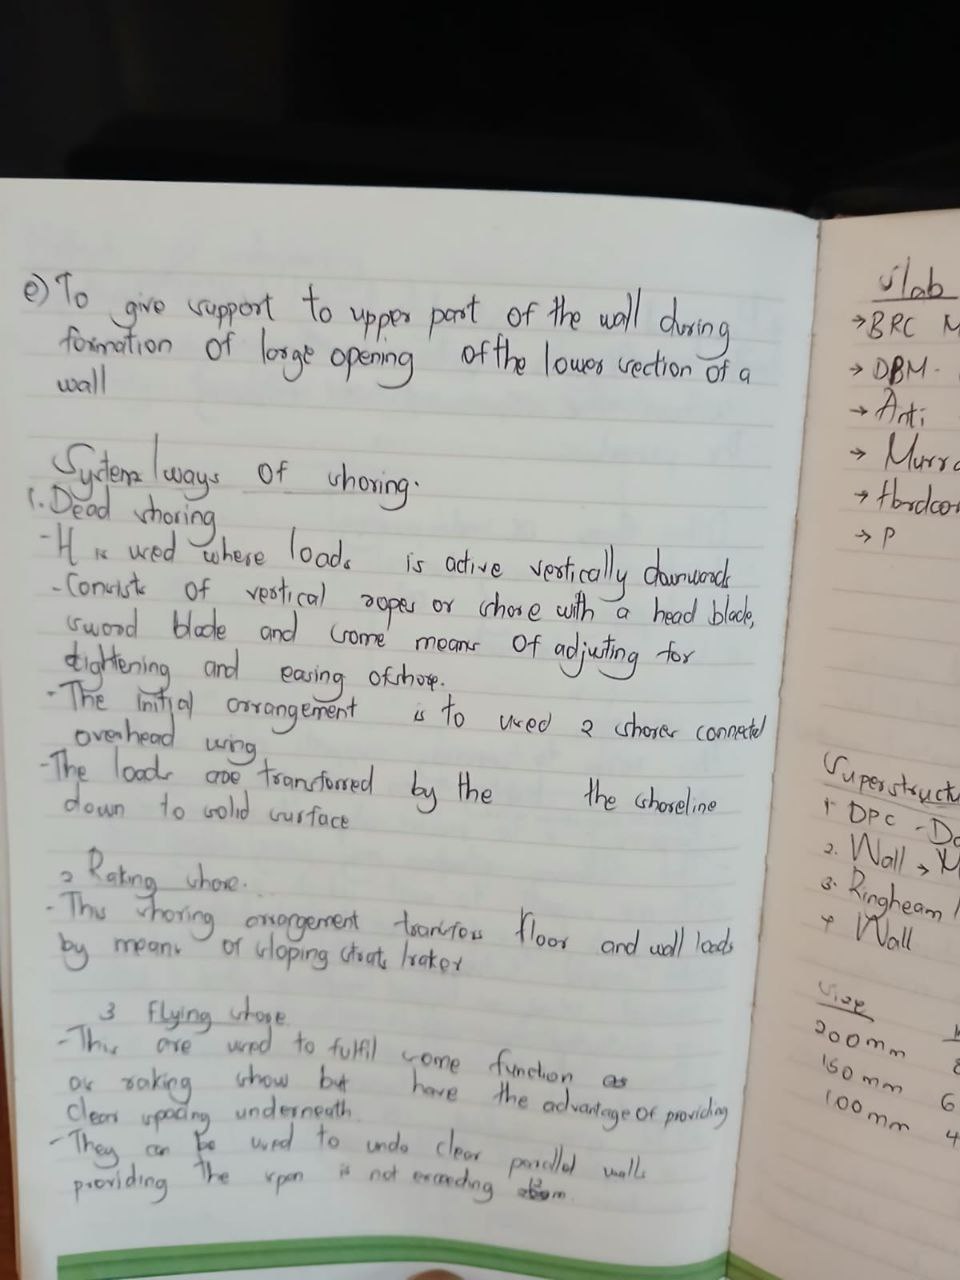 e) To give support to upper part of the wall during
formation of large opening of the lower section of a
wall
System / ways of shoring.
1. Dead shoring
- It is used where loads is active vertically downwards
- Consists of vertical ropes or shore with a head blade,
sword blade and some means of adjusting for
tightening and easing of shore.
- The initial arrangement is to used 2 shores connected
overhead using
- The loads are transferred by the the shoreline
down to solid surface
2 Raking shore.
- This shoring arrangement transfers floor and wall loads
by means of sloping struts /raker
3 Flying shore
- This are used to fulfil some function as
as raking show but have the advantage of providing
clear spacing underneath.
- They can be used to undo clear parallel walls
providing the span is not exceeding
Slab
→ BRC M
→ DBM -
→ Anti
→ Murra
→ Hardcor
→ P
Superstructu
1. DPC - Da
2. Wall →
3. Ringbeam
4 Wall
Size
200mm
150mm 6
100mm 4